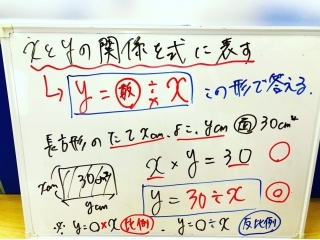 xとyの関係を式に表す
↳ y = 数 ÷ x この形で答える.
×
長方形のたて xcm. よこ. ycm 面 30cm²
x × y = 30 ○
xcm 30cm²
ycm
y = 30÷x ◎
※ y=○×x 比例 . y=○÷x 反比例